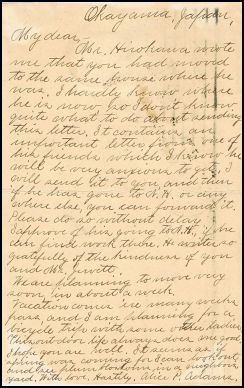 Okayama, Japan,
My dear
Mr. Hirokawa wrote
me that you had moved
to the same house where he
was. I hardly know where
he is now, so I don't know
quite what to do about sending
this letter. It contains an
important letter from one of
his friends which I know he
will be very anxious to get. I
will send it to you and then
if he has gone to N.H. or any
where else, you can forward it.
Please do so without delay.
I approve of his going to N.H. if he
can find work there. He writes so
gratefully of the kindness of you
and Mr. Jewett.
We are planning to move very
soon, in about a week.
Vacation comes in many weeks
pass, and I am planning for a
bicycle trip with some other ladies.
This out door life always does me good.
I hope you are well. It seems as if
spring was coming for I can look out
and see plum blossoms in a neighbor's
yard. With love, Hastily, Alice P. Adams.